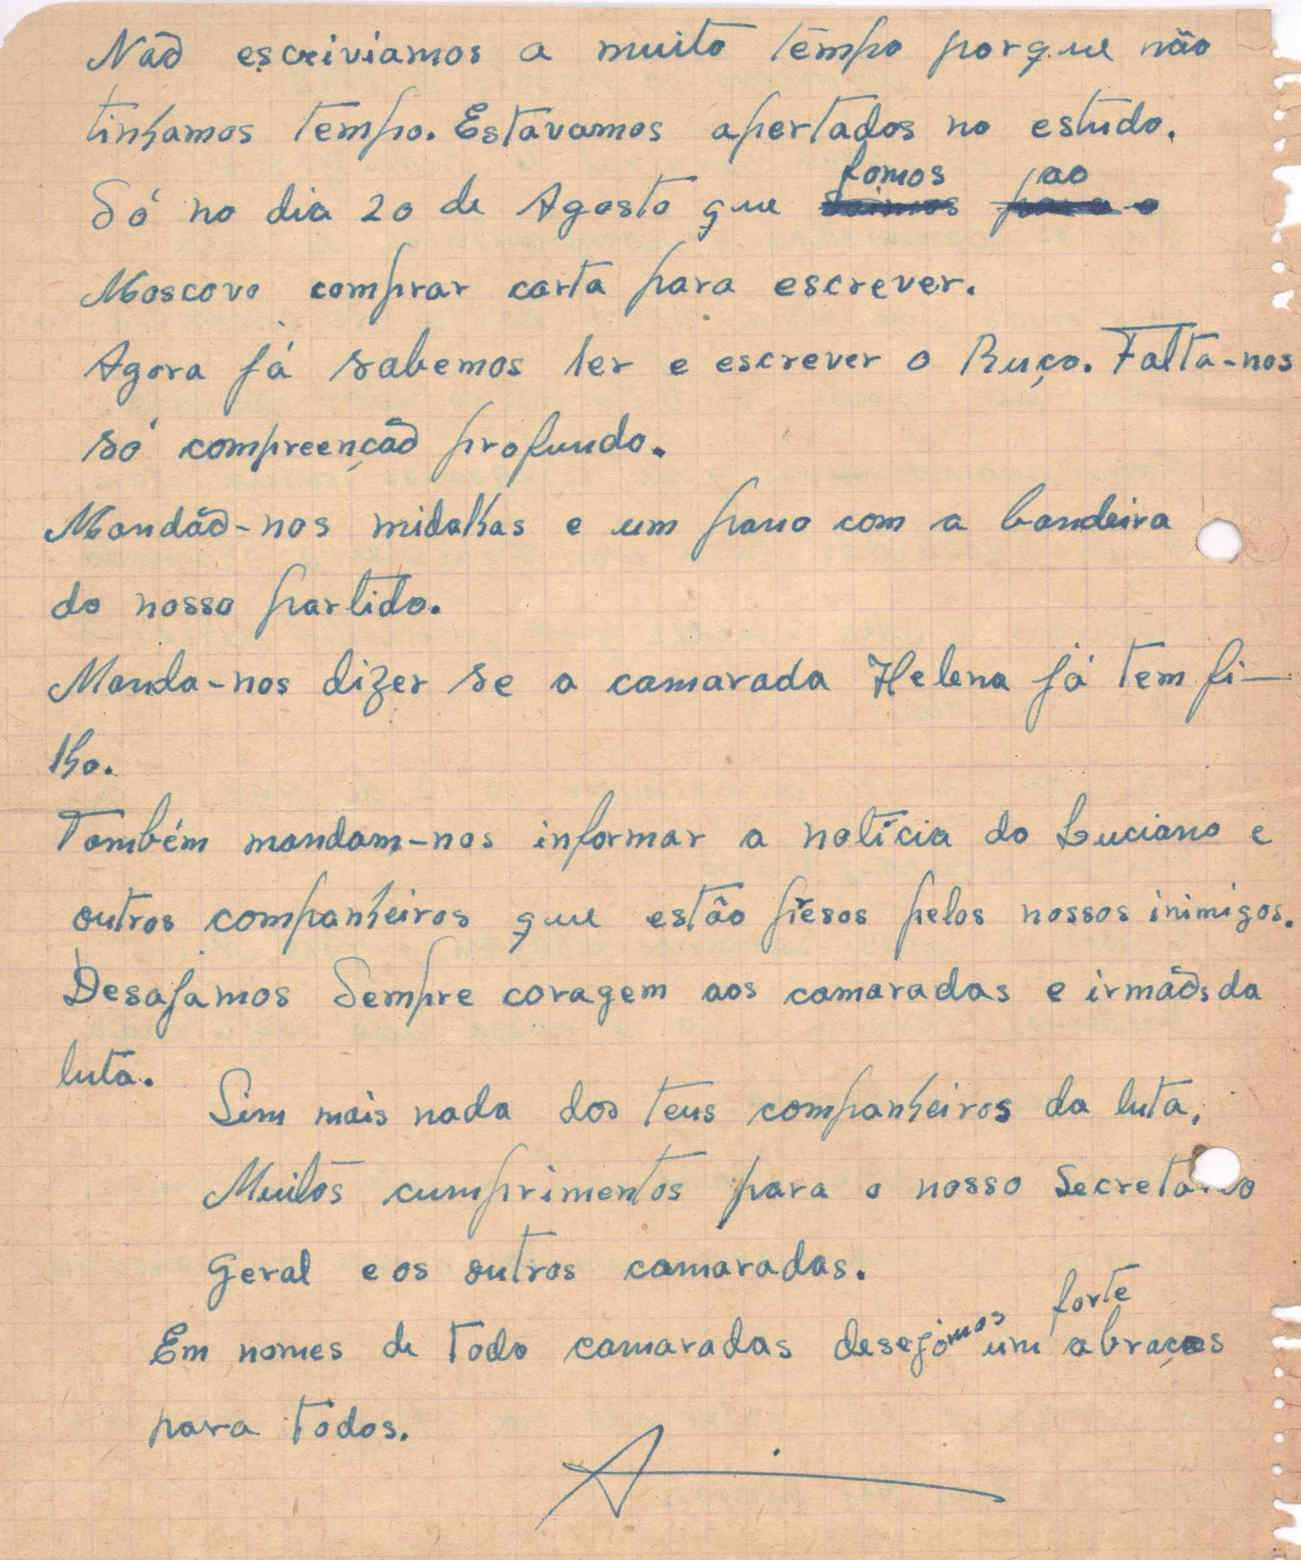 Não escriviamos a muito têmpo porque não
tinhamos tempo. Estavamos apertados no estudo.
Só no dia 20 de Agosto que fomos ao
Moscovo comprar carta para escrever.
Agora já sabemos ler e escrever o Ruço. Falta-nos
só compreenção profundo.
Mandão-nos midalhas e um pano com a bandeira
do nosso partido.
Manda-nos dizer se a camarada Helena já tem fi-
lho.
Também mandam-nos informar a notícia do Luciano e
outros companheiros que estão presos pelos nossos inimigos.
Desajamos Sempre coragem aos camaradas e irmãos da
luta.
Sim mais nada dos teus companheiros da luta,
Muitos cumprimentos para o nosso Secretário
Geral e os outros camaradas.
Em nomes de todo camaradas desejamos um forte abraços
para todos.